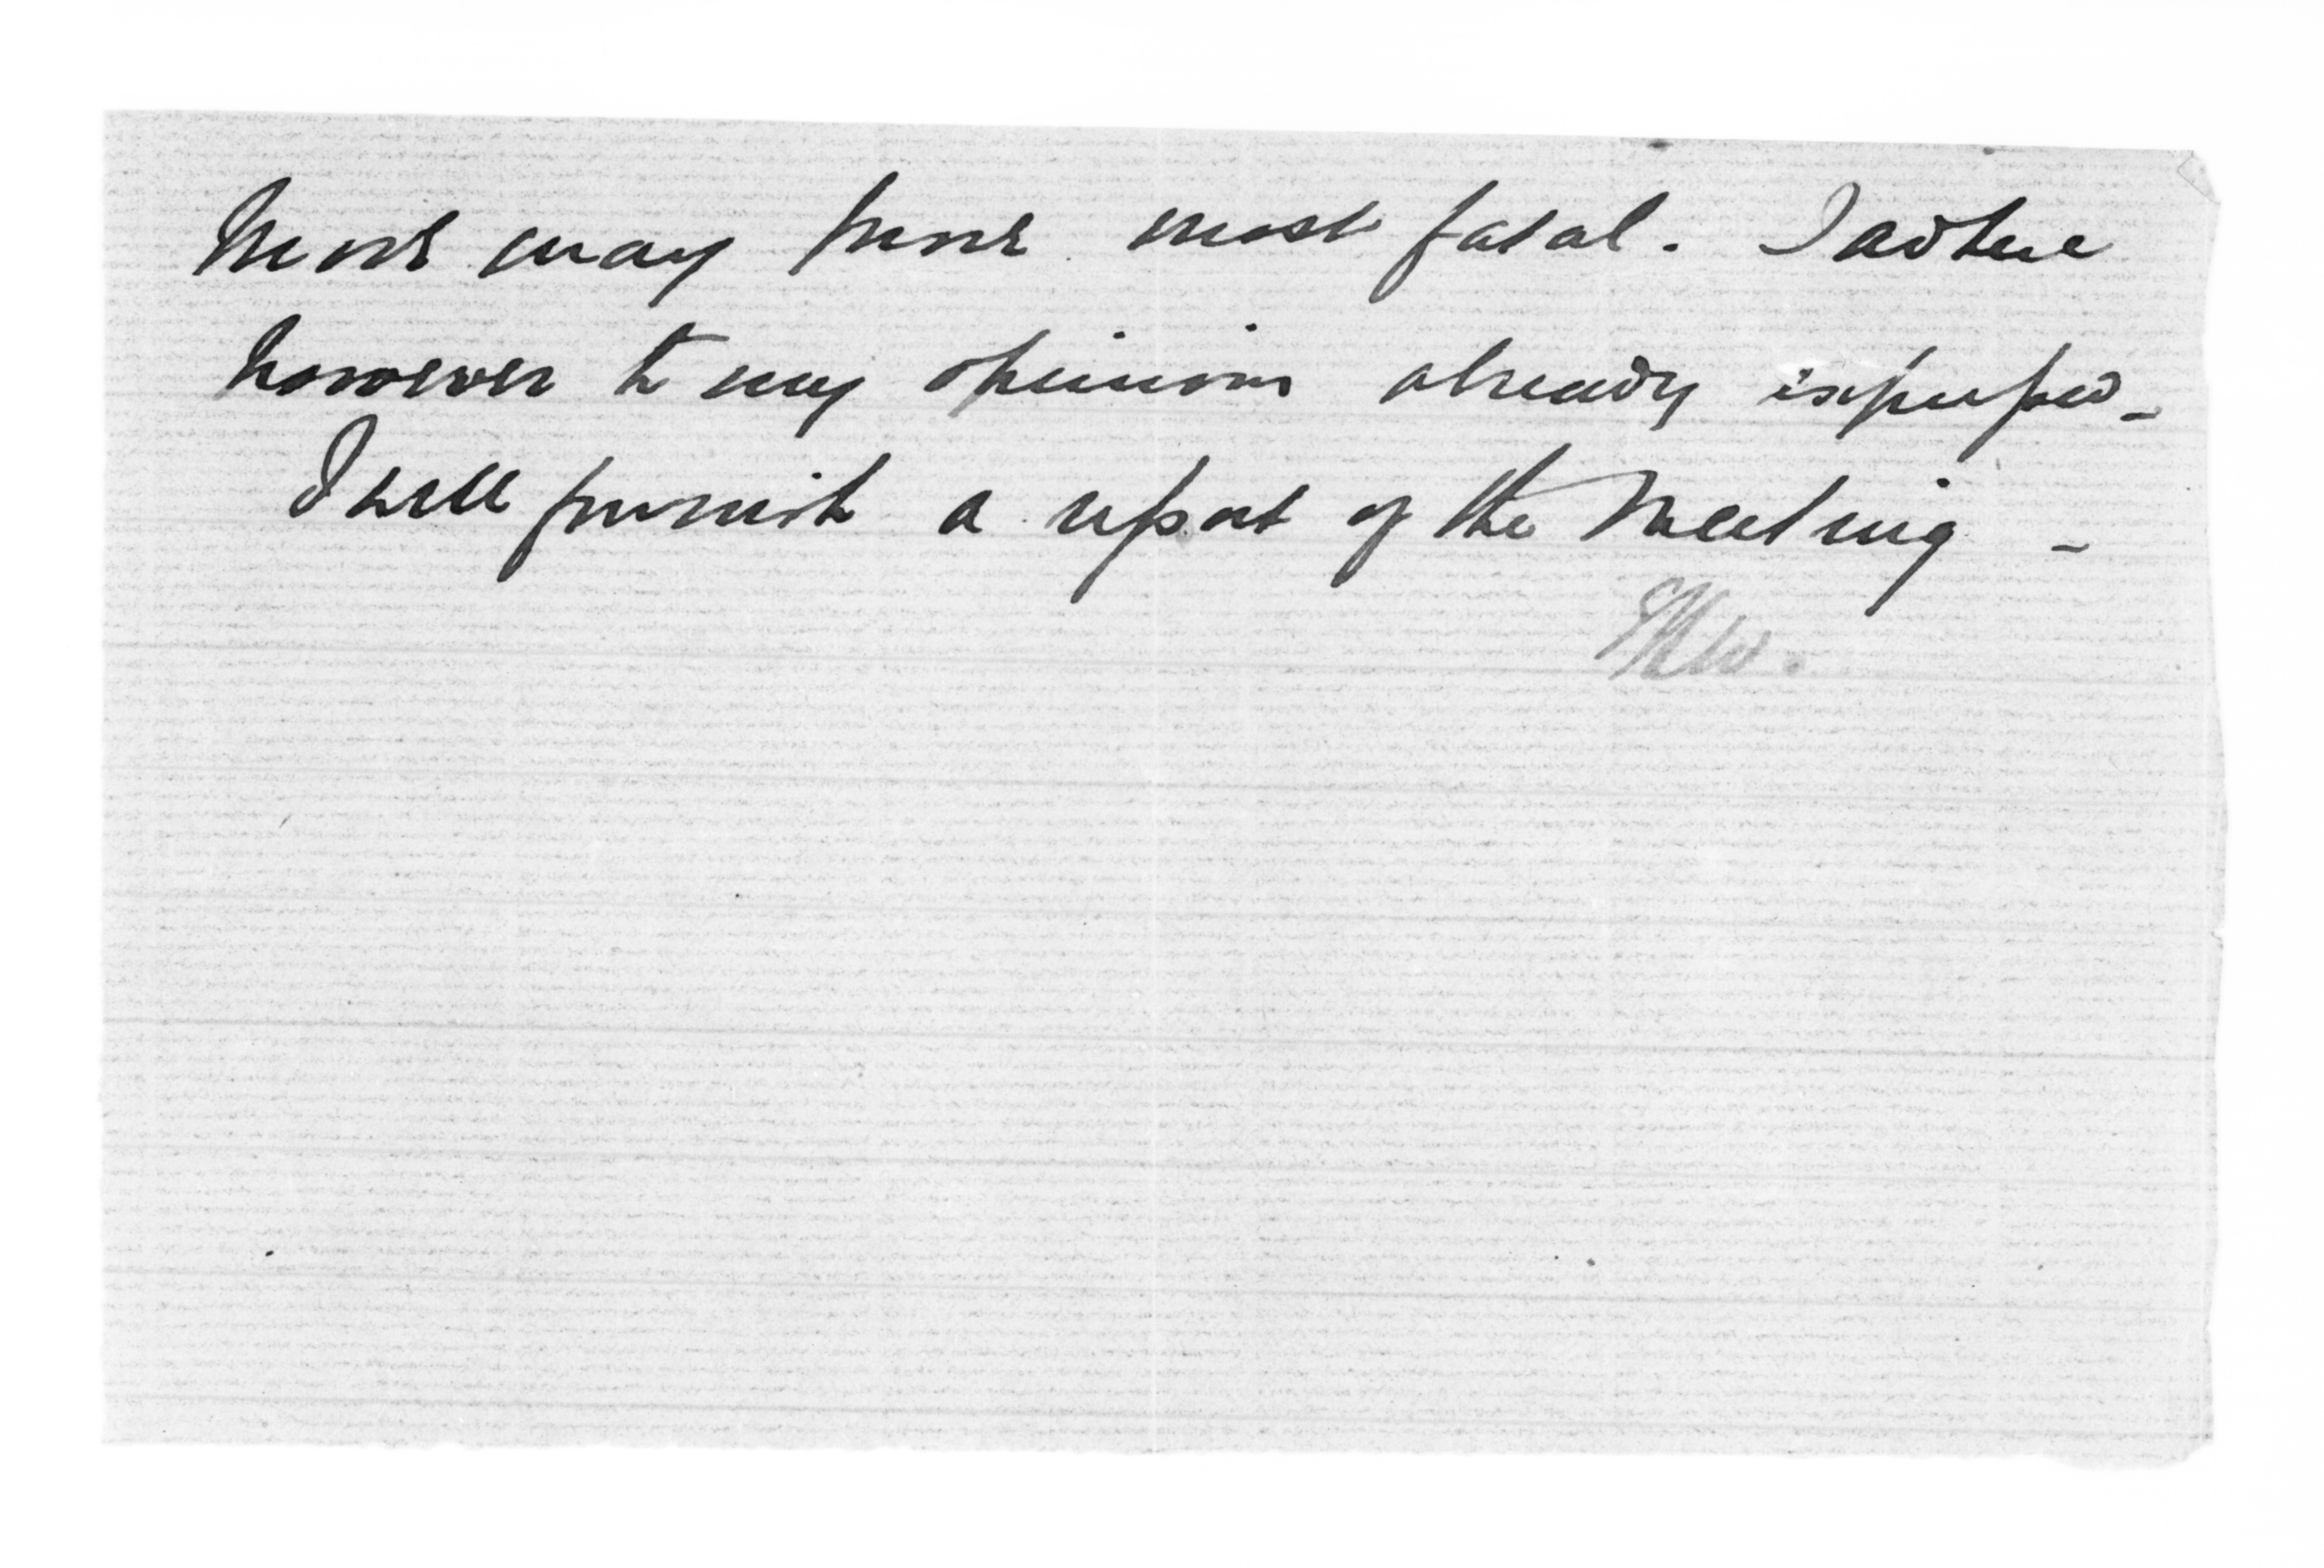 move may prove most fatal. I adhere
however to my opinion already expressed -
I will furnish a report of the Meeting -